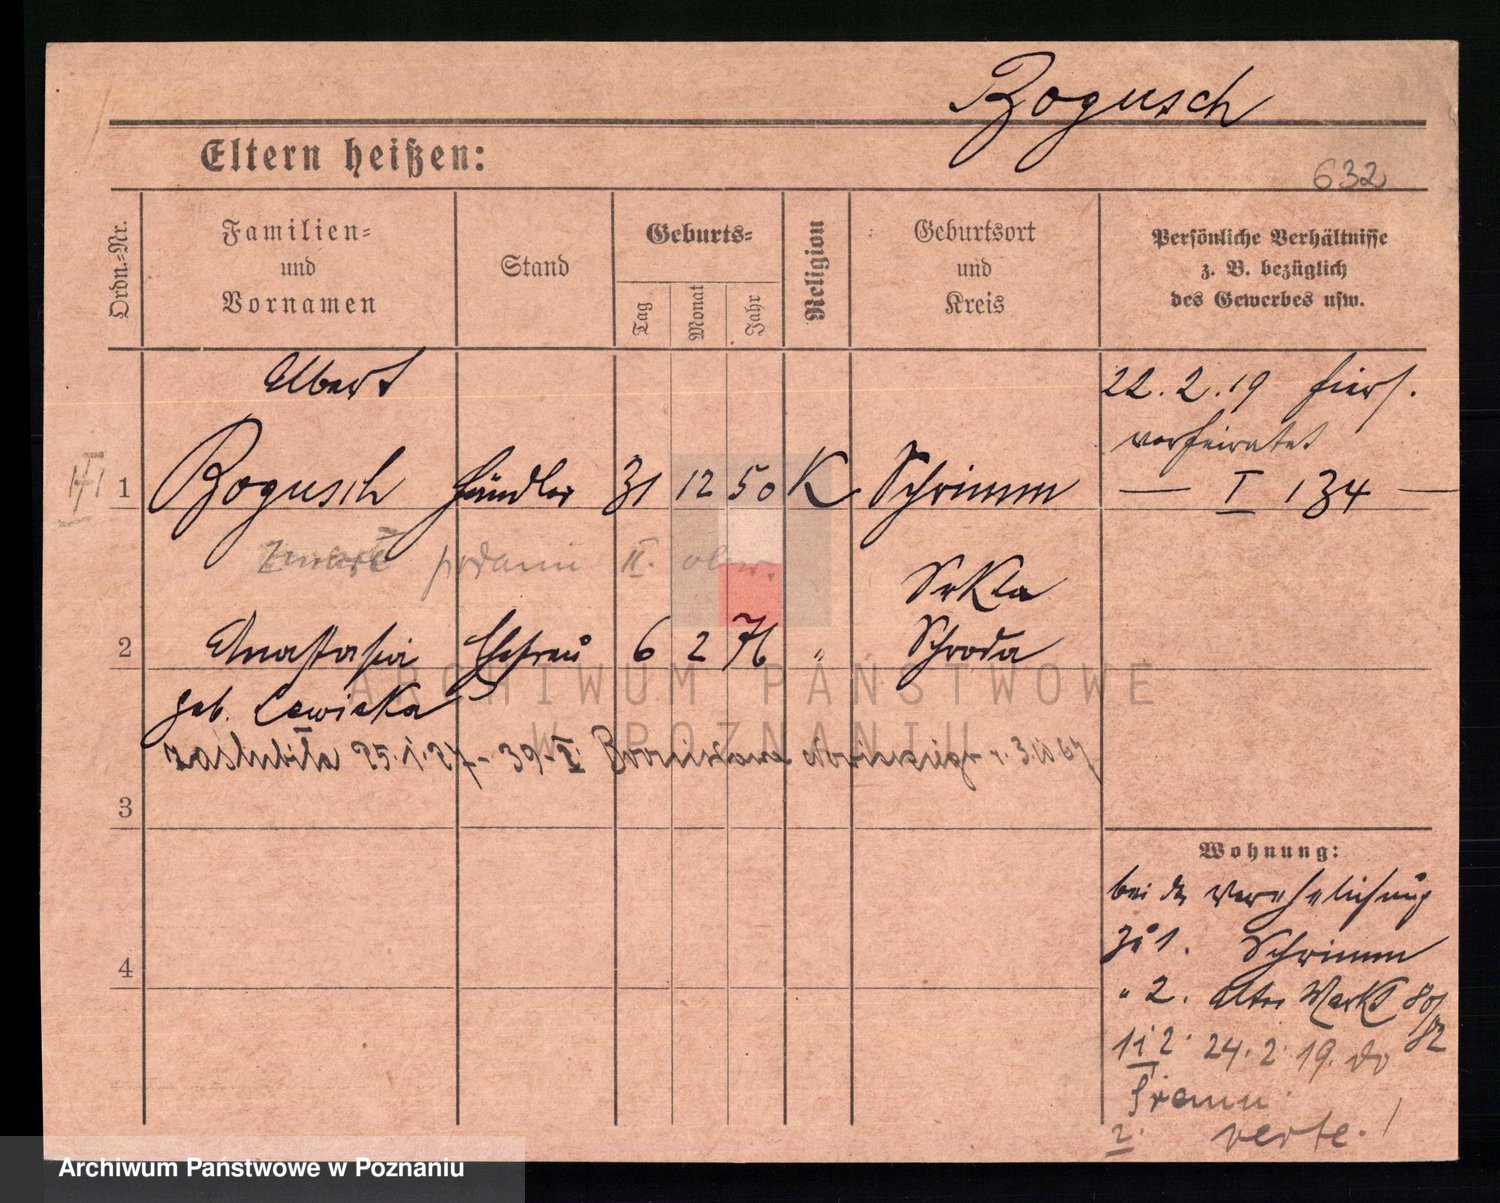 Bogusch
Eltern heißen:
632
Ordn.=Nr.
Familien=
und
Vornamen
Stand
Geburts=
Tag
Monat
Jahr
Religion
Geburtsort
und
Kreis
Persönliche Verhältnisse
z. B. bezüglich
des Gewerbes usw.
Albert
22.2.19 hiers.
verheiratet
1 Bogusch Händler 31 12 50 K Schrimm — I 134 —
podaniu II.
2 Anastasia Ehefrau 6 2 76 " Schroda
geb. Lewicka
zaślubiła 25.1.27 - 39 - I Bronisława
3
4
Wohnung:
bei der Verehelichung
zu 1. Schrimm
" 2. Alter Markt 80/82
1 i 2. 24.2.19. do
Śremu
2. verte!
ARCHIWUM PAŃSTWOWE
W POZNANIU
Archiwum Państwowe w Poznaniu